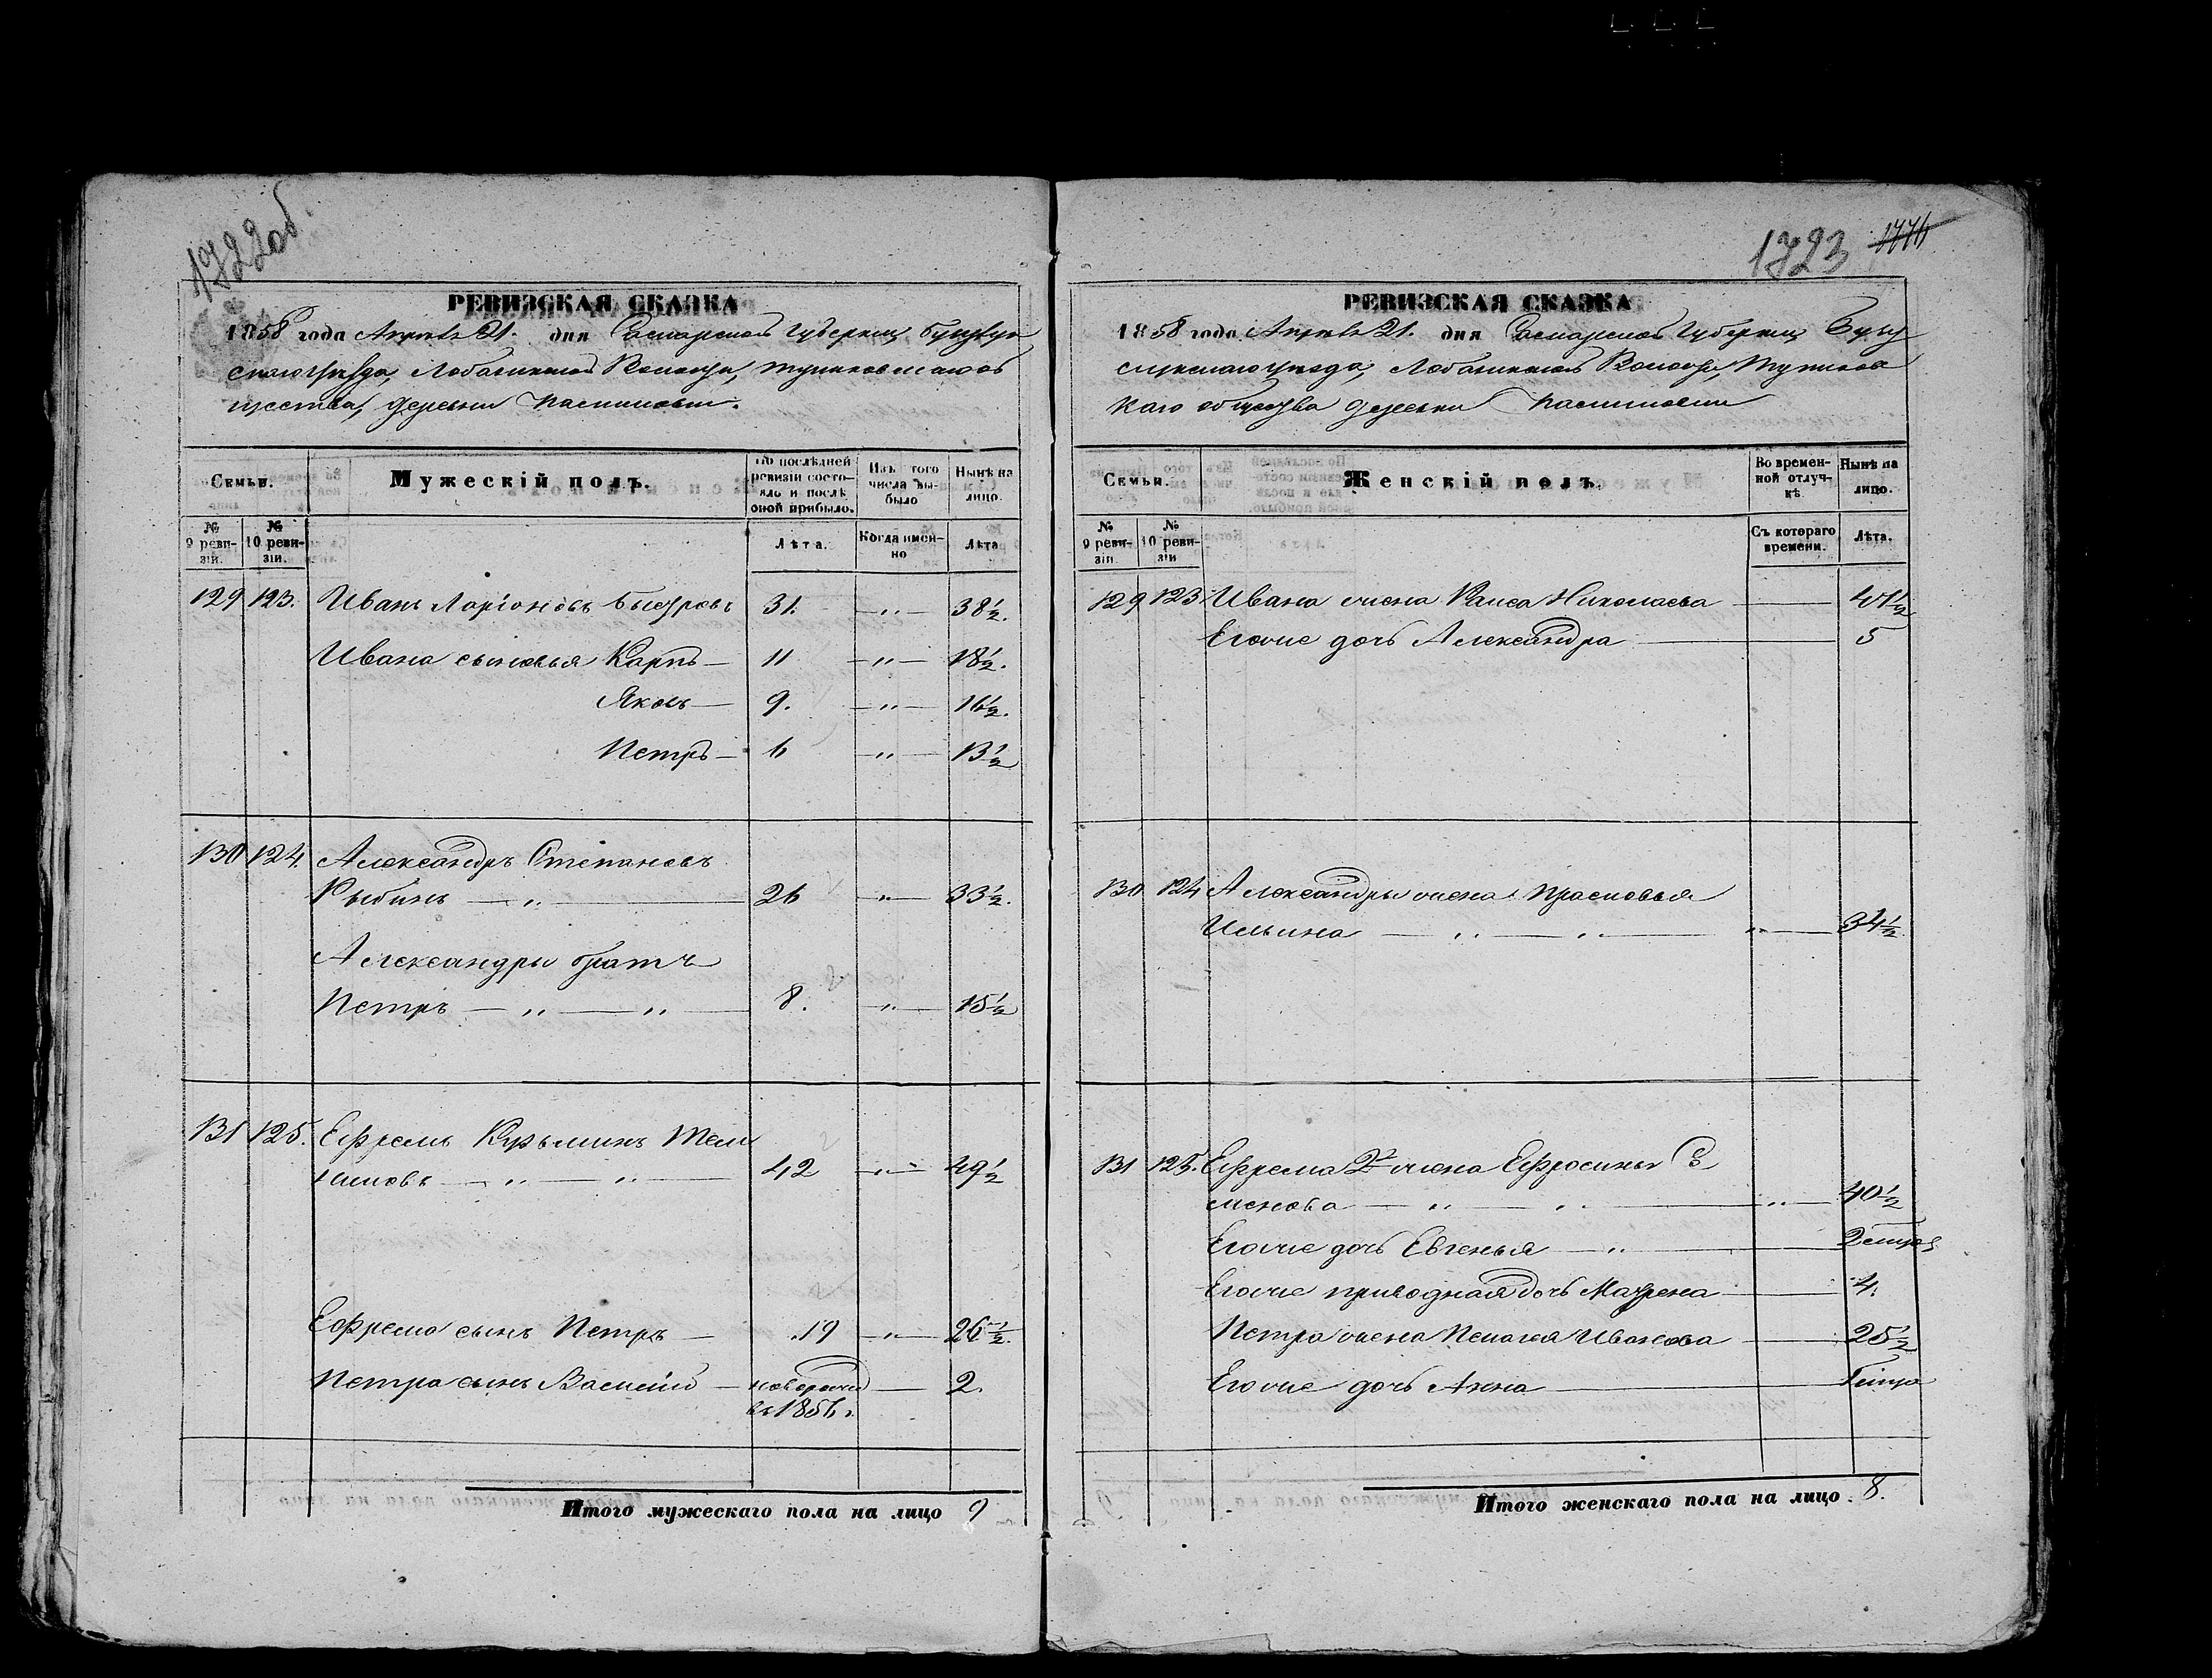 1722об.
РЕВИЗСКАЯ СКАЗКА
1858 года Апрѣля 21. дня Самарской Губерніи, Бугурус
ланскаго уѣзда, Лобазинской Волости,
щества, деревни
Семьи.
Мужескій полъ.
По послѣдней ревизіи состояло и послѣ оной прибыло.
Изъ того числа выбыло
Нынѣ на лицо.
№ 9 ревизіи.
№ 10 ревизіи.
Лѣта.
Когда именно
Лѣта
129 123. Иванъ Ларіоновъ Быстровъ 31. —„— 38½.
Ивана сыновья Карпъ — 11 —„— 18½.
Яковъ — 9. —„— 16½.
Петръ — 6 —„— 13½
130 124. Александръ Степановъ
Рыбинъ — „ — 26 „— 33½.
Александры братъ
Петръ — „ — „ — 8. —„— 15½
131 125. Ефремъ Кузьминъ
— „ — „ — 42 —„— 49½
Ефрема сынъ Петръ — 19 —„— 26½.
Петра сынъ Василій — новорожд — 2.
въ 1856 г.
Итого мужескаго пола на лицо 9
1723
РЕВИЗСКАЯ СКАЗКА
1858 года Апрѣля 21. дня Самарской Губерніи Бугу
русланскаго уѣзда, Лобазинской Волости,
каго общества деревни
Семьи.
Женскій полъ.
Во временной отлучкѣ.
Нынѣ на лицо.
№ 9 ревизіи
№ 10 ревизіи
Съ котораго времени.
Лѣта.
129 123 Ивана жена Раиса Николаева — 41½
Егоже дочь Александра — 5
130 124 Александры жена Прасковья
Ильина — „ — „ — „— 34½
131 125. Ефрема 2я жена Ефросинья Се
менова — „ — „ — „— 40½
Егоже дочь Евгенья — „ — 2
Егоже приводная дочь Матрена — 4.
Петра жена Пелагея Иванова — 25½
Егоже дочь Анна —
Итого женскаго пола на лицо 8.